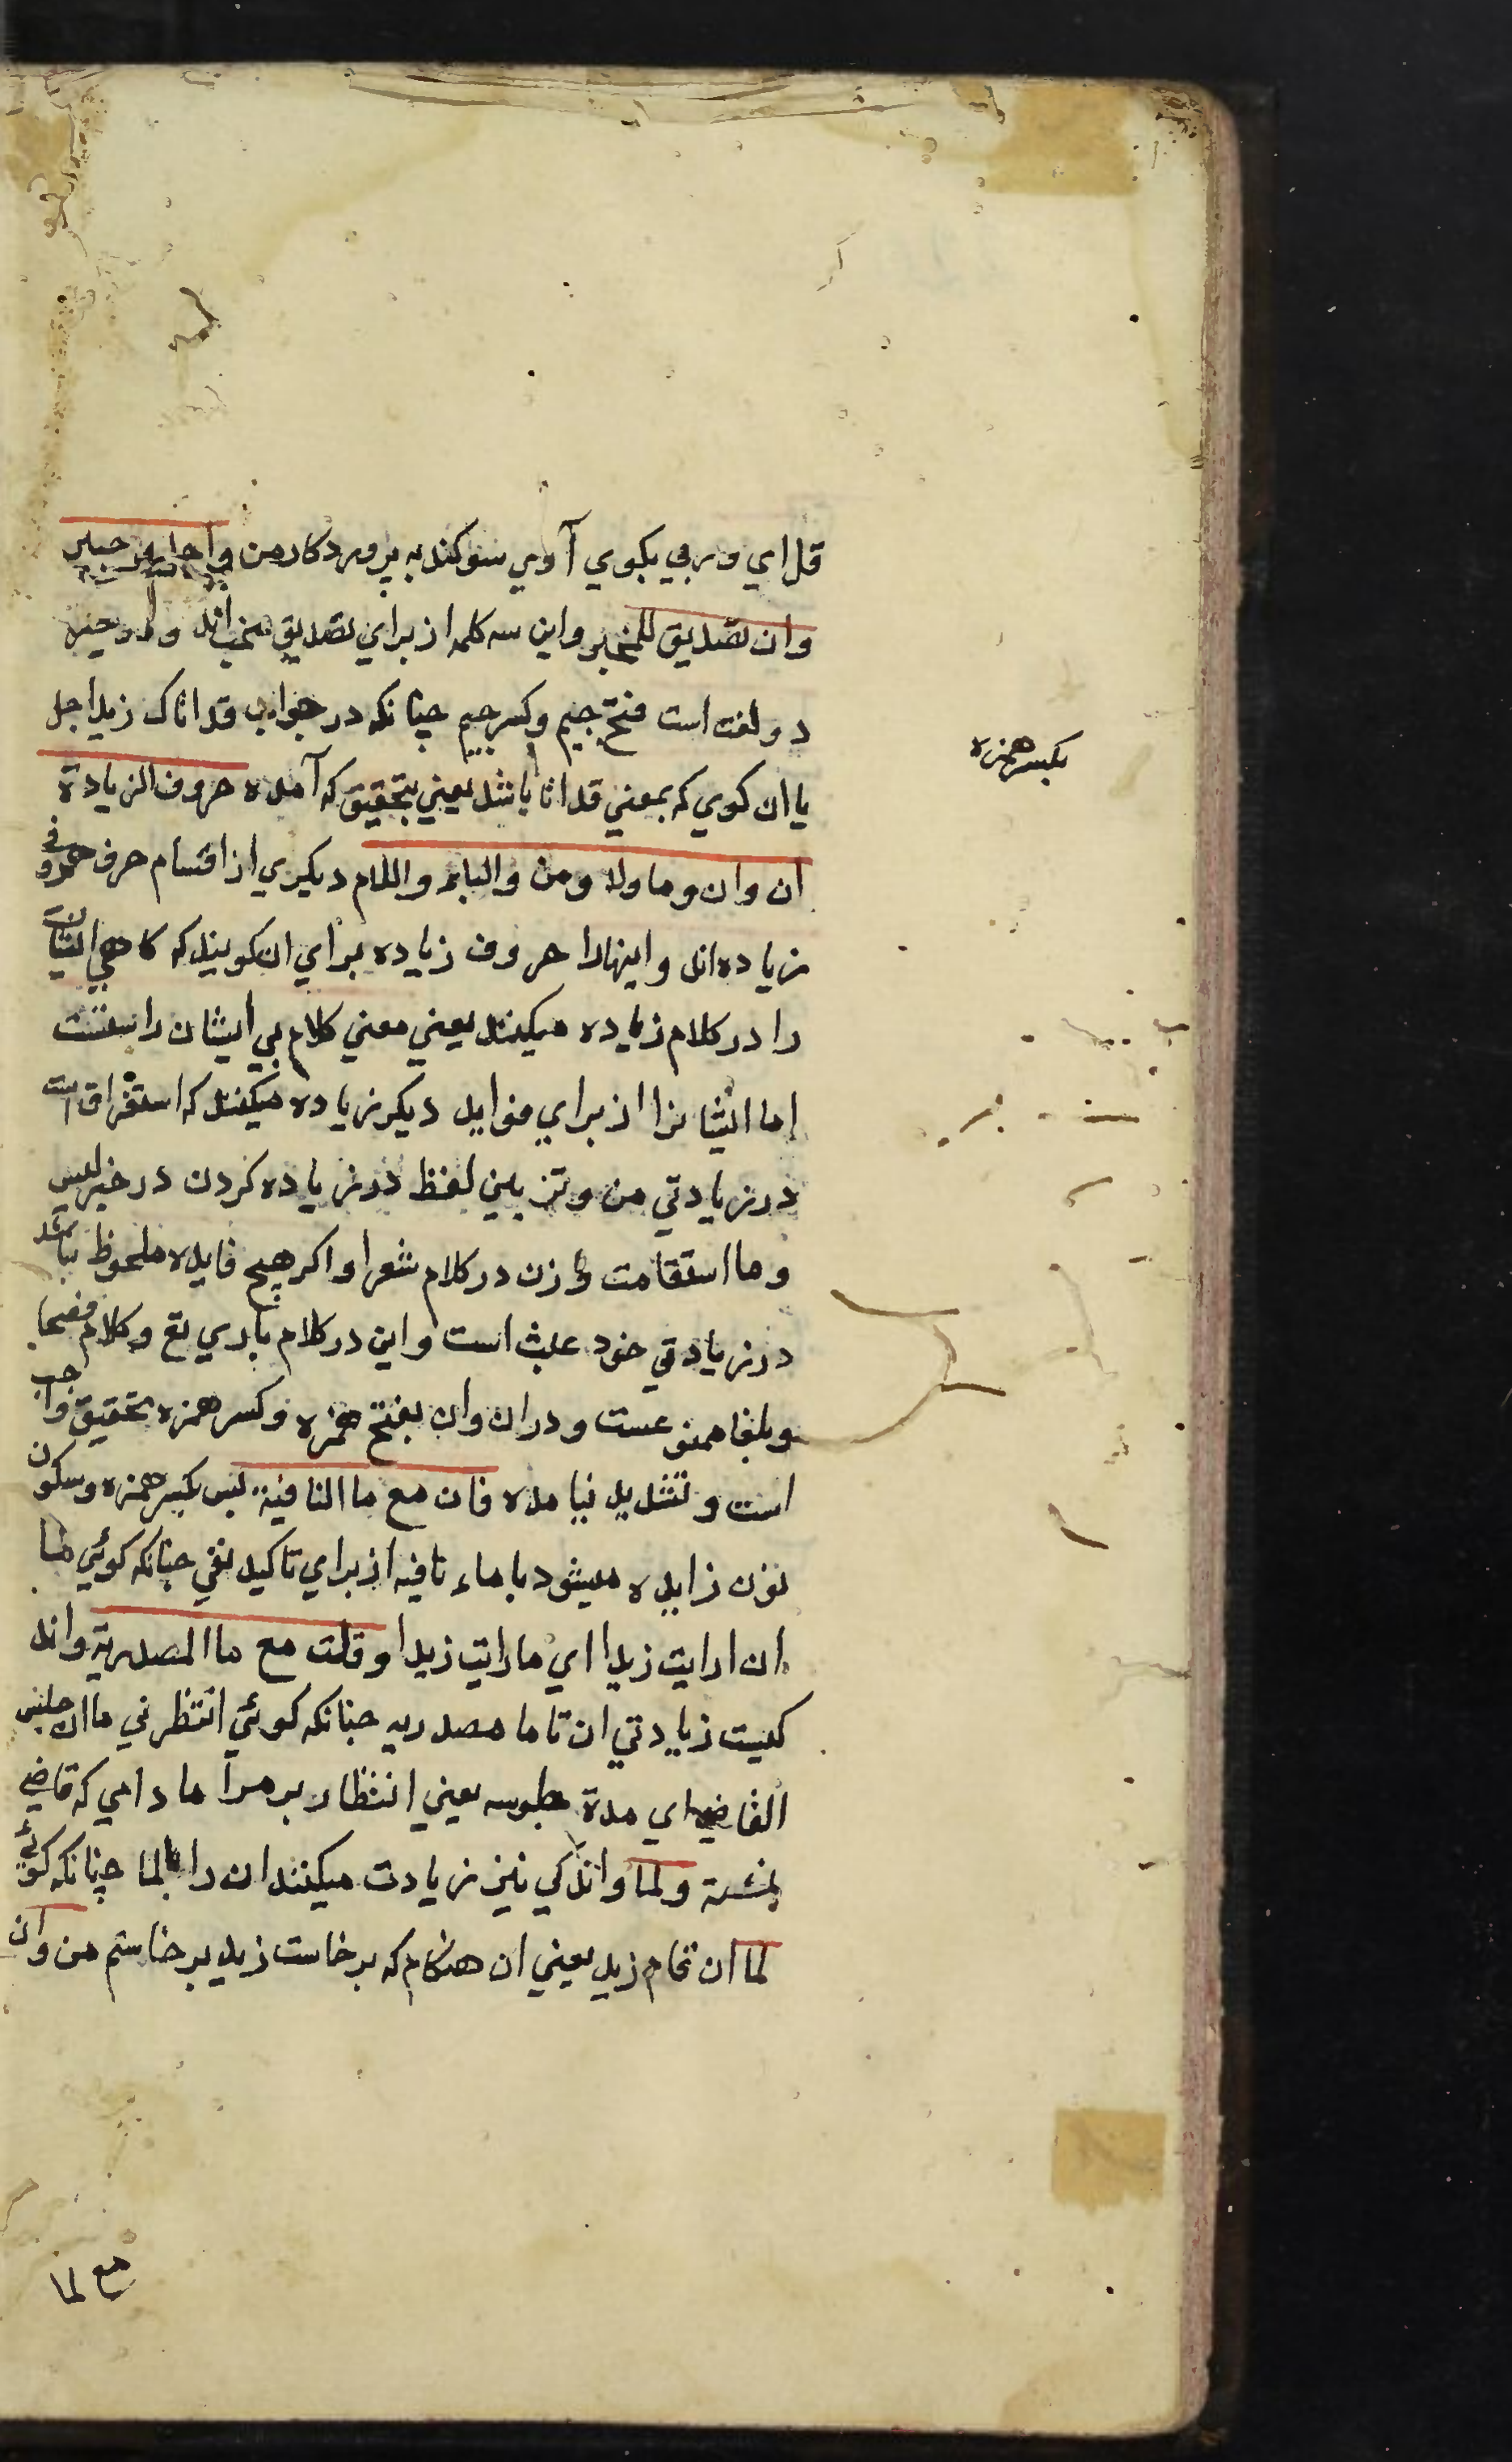 قل اي وربي بكوي آري سوكند به پروردكار من واجل وجير
وان تصديق للمخبر واين سه كلمه از براي تصديق مخبراند ودر جير
دو لغت است فتح جيم وكسر جيم چنانكه در جواب قد اتاك زيد اجل
يا ان كوي كه بمعني قد اتا باشد يعني بتحقيق كه آمده حروف الزيادة
ان وان وما ولا ومن والباء واللام ديكيري از اقسام حرف حروف
زياده اند واينها را حروف زياده براي ان كويند كه كاهي ايشان
را در كلام زياده ميكنند يعني معني كلام بي ايشان راستست
اما ايشانرا از براي فوايد ديكر زياده ميكنند كه استغراق است
در زيادتي من وتزيين لفظ در زياده كردن در خبر ليس
وما استقامت وزن در كلام شعرا واكر هيچ فايده ملحوظ نباشد
در زيادتي خود عبث است واين در كلام باري تع وكلام فصحا
وبلغا ممنوعست ودر ان وان بفتح همزه وكسر همزه تحقيق واجب
است وتشديد نيامده فان مع ما النافية پس بكسر همزه وسكون
نون زايده ميشود با ماء نافيه از براي تاكيد نفي چنانكه كوئي ما
ان رايت زيدا اي ما رايت زيدا وقلت مع ما المصدرية واند
كيست زيادتي ان تا ما مصدريه چنانكه كوئي انتظرني ما ان جلس
القاضي اي مدة جلوسه يعني انتظار بر مرا ما دامي كه قاضي
نشسته ولما واندكي نيز زيادت ميكنند ان را بلما چنانكه كوئي
لما ان قام زيد يعني ان هنكام كه برخاست زيد برخاستم من وان
بكسر همزه
مع لما